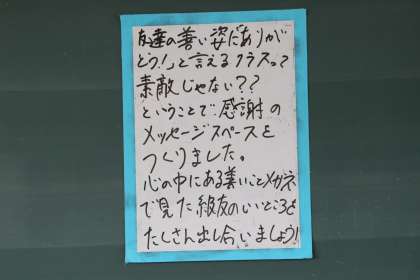 友達の善い姿に「ありが
とう!」と言えるクラスって
素敵じゃない??
ということで、感謝の
メッセージスペースを
つくりました。
心の中にある善いことメガネ
で見た級友のいいところを
たくさん出し合いましょう!